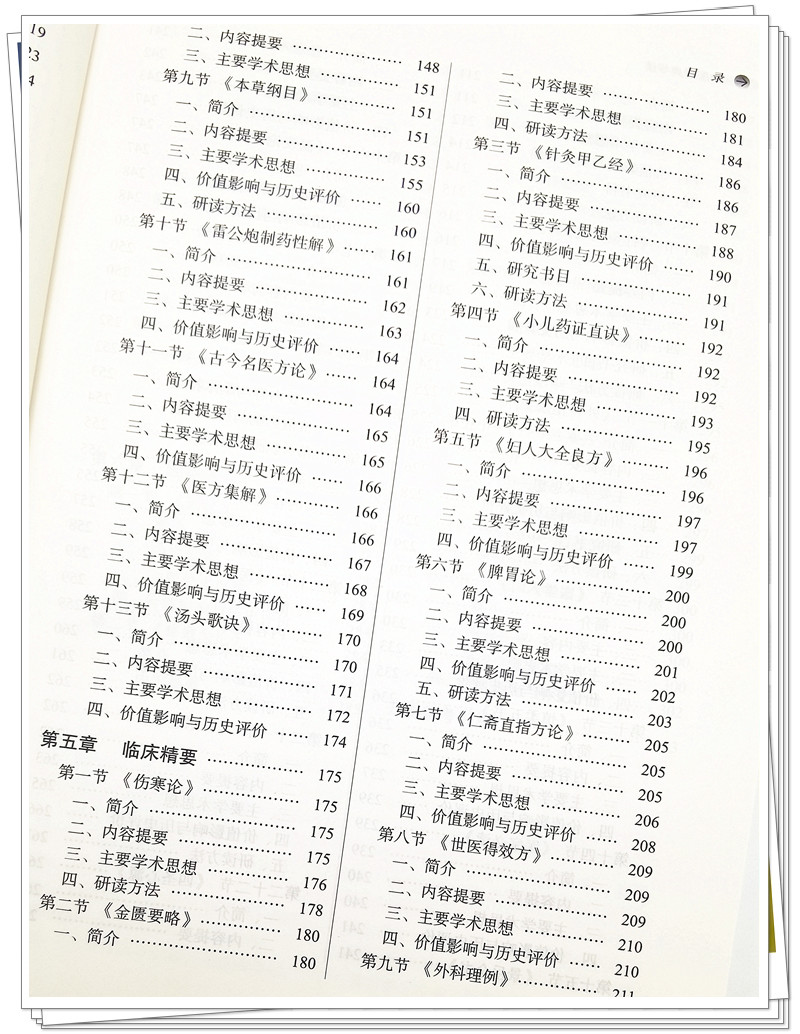 19
23
4
二、内容提要 …… 148
三、主要学术思想 …… 151
第九节 《本草纲目》 …… 151
一、简介 …… 151
二、内容提要 …… 153
三、主要学术思想 …… 155
四、价值影响与历史评价 …… 160
五、研读方法 …… 160
第十节 《雷公炮制药性解》 …… 161
一、简介 …… 161
二、内容提要 …… 162
三、主要学术思想 …… 163
四、价值影响与历史评价 …… 164
第十一节 《古今名医方论》 …… 164
一、简介 …… 164
二、内容提要 …… 165
三、主要学术思想 …… 165
四、价值影响与历史评价 …… 166
第十二节 《医方集解》 …… 166
一、简介 …… 166
二、内容提要 …… 167
三、主要学术思想 …… 168
四、价值影响与历史评价 …… 169
第十三节 《汤头歌诀》 …… 170
一、简介 …… 170
二、内容提要 …… 171
三、主要学术思想 …… 172
四、价值影响与历史评价 …… 174
第五章 临床精要 …… 175
第一节 《伤寒论》 …… 175
一、简介 …… 175
二、内容提要 …… 175
三、主要学术思想 …… 176
四、研读方法 …… 178
第二节 《金匮要略》 …… 180
一、简介 …… 180
目 录
二、内容提要 …… 180
三、主要学术思想 …… 181
四、研读方法 …… 184
第三节 《针灸甲乙经》 …… 186
一、简介 …… 186
二、内容提要 …… 187
三、主要学术思想 …… 188
四、价值影响与历史评价 …… 190
五、研究书目 …… 191
六、研读方法 …… 191
第四节 《小儿药证直诀》 …… 192
一、简介 …… 192
二、内容提要 …… 192
三、主要学术思想 …… 193
四、研读方法 …… 195
第五节 《妇人大全良方》 …… 196
一、简介 …… 196
二、内容提要 …… 197
三、主要学术思想 …… 197
四、价值影响与历史评价 …… 199
第六节 《脾胃论》 …… 200
一、简介 …… 200
二、内容提要 …… 200
三、主要学术思想 …… 201
四、价值影响与历史评价 …… 202
五、研读方法 …… 203
第七节 《仁斋直指方论》 …… 205
一、简介 …… 205
二、内容提要 …… 205
三、主要学术思想 …… 206
四、价值影响与历史评价 …… 208
第八节 《世医得效方》 …… 209
一、简介 …… 209
二、内容提要 …… 209
三、主要学术思想 …… 210
四、价值影响与历史评价 …… 210
第九节 《外科理例》 …… 211